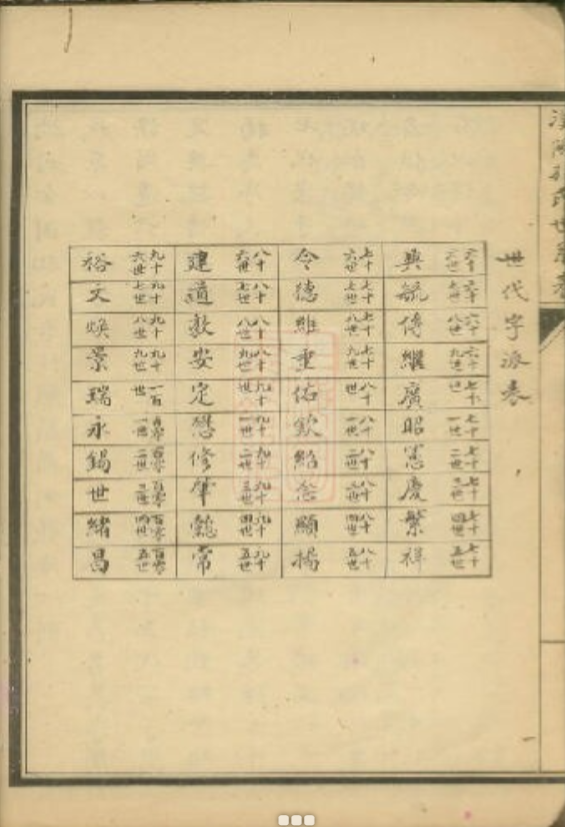 漢陽孔氏世系
世代字派表
六十六世 興
六十七世 毓
六十八世 傳
六十九世 繼
七十世 廣
七十一世 昭
七十二世 憲
七十三世 慶
七十四世 繁
七十五世 祥
七十六世 令
七十七世 德
七十八世 維
七十九世 垂
八十世 佑
八十一世 欽
八十二世 紹
八十三世 念
八十四世 顯
八十五世 揚
八十六世 建
八十七世 道
八十八世 敦
八十九世 安
九十世 定
九十一世 懋
九十二世 修
九十三世 肇
九十四世 彝
九十五世 常
九十六世 裕
九十七世 文
九十八世 煥
九十九世 景
一百世 瑞
百零一世 永
百零二世 錫
百零三世 世
百零四世 緒
百零五世 昌
一